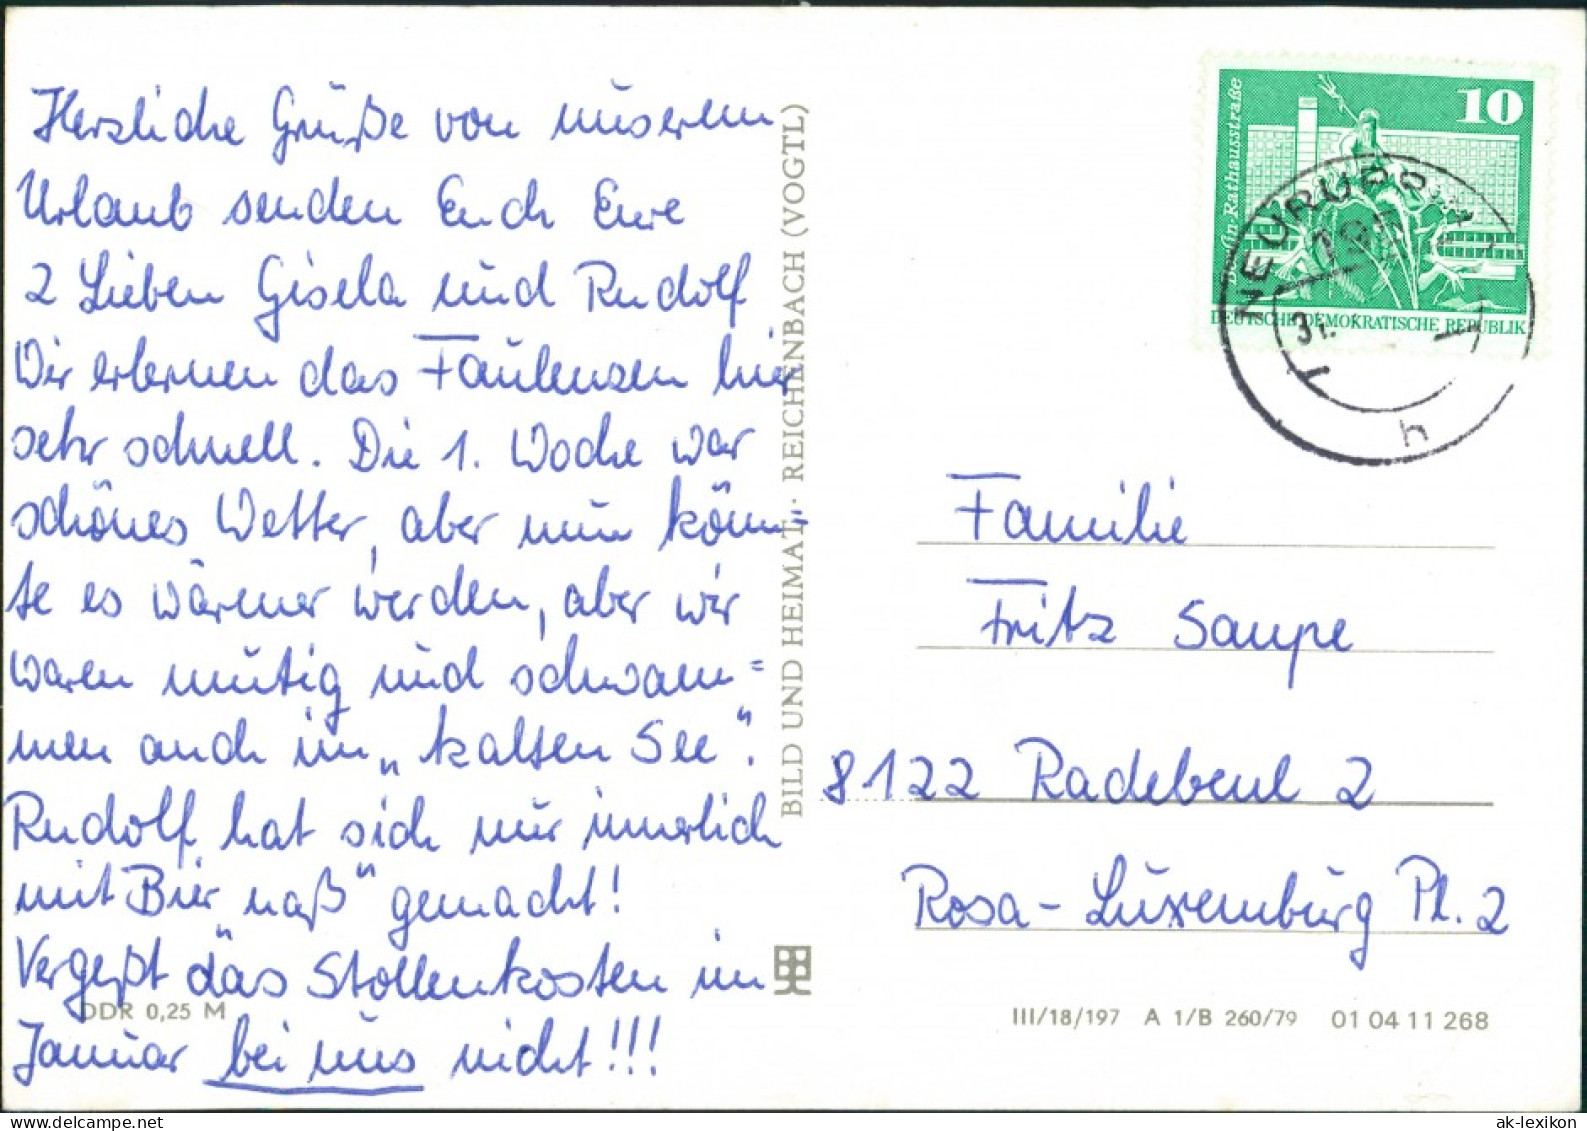 Herzliche Grüße von unserem
Urlaub senden Euch Eure
2 Lieben Gisela und Rudolf
Wir erlernen das Faulenzen hier
sehr schnell. Die 1. Woche war
schönes Wetter, aber nun könn=
te es wärmer werden, aber wir
waren mutig und schwam=
men auch im „kalten See“.
Rudolf hat sich nur innerlich
mit Bier „naß“ gemacht!
Vergeßt das Stollenkosten im
Januar bei uns nicht!!!
DDR 0,25 M
BILD UND HEIMAT · REICHENBACH (VOGTL)
10
Berlin-Rathausstraße
DEUTSCHE DEMOKRATISCHE REPUBLIK
NEURUPPIN 1
31.
h
Familie
Fritz Saupe
8122 Radebeul 2
Rosa-Luxemburg Pl. 2
III/18/197 A 1/B 260/79 01 04 11 268
ak-lexikon